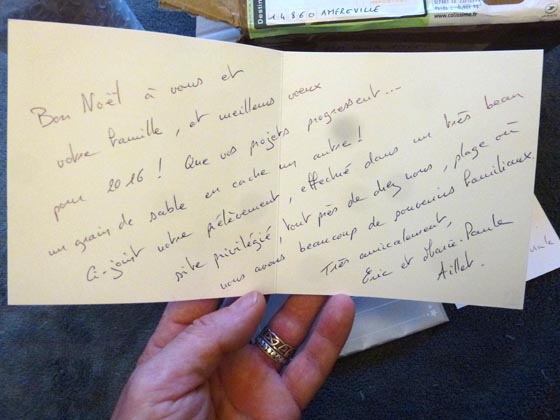 14860 AMFREVILLE
www.colissimo.fr
Bon Noël à vous et
votre famille, et meilleurs voeux
pour 2016 ! Que vos projets progressent...
un grain de sable en cache un autre !
Ci-joint votre prélèvement, effectué dans un très beau
site privilégié, tout près de chez nous, plage où
nous avons beaucoup de souvenirs familiaux.
Très amicalement,
Eric et Marie-Paule
Aillet.